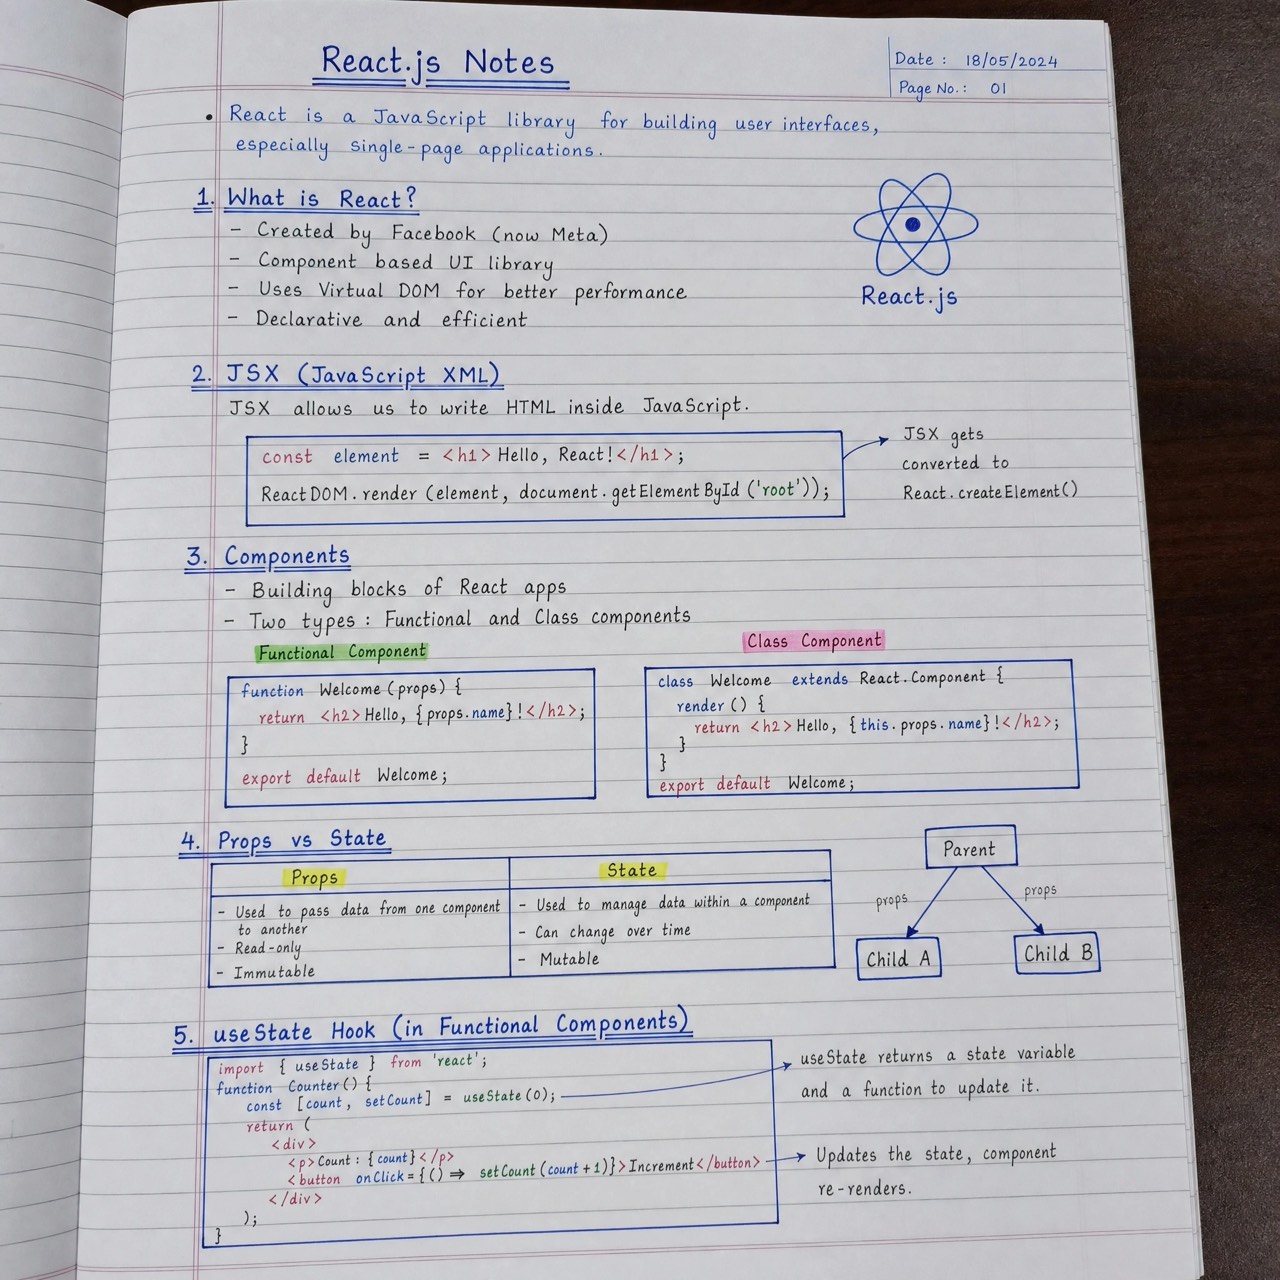 React.js Notes
Date : 18/05/2024
Page No. : 01
• React is a JavaScript library for building user interfaces,
especially single-page applications.
1. What is React?
- Created by Facebook (now Meta)
- Component based UI library
- Uses Virtual DOM for better performance
- Declarative and efficient
React.js
2. JSX (JavaScript XML)
JSX allows us to write HTML inside JavaScript.
const element = <h1> Hello, React!</h1>;
ReactDOM.render (element, document.getElementById ('root'));
JSX gets
converted to
React.createElement()
3. Components
- Building blocks of React apps
- Two types : Functional and Class components
Functional Component
function Welcome (props) {
return <h2> Hello, {props.name}!</h2>;
}
export default Welcome;
Class Component
class Welcome extends React.Component {
render () {
return <h2> Hello, {this.props.name}!</h2>;
}
}
export default Welcome;
4. Props vs State
Props
- Used to pass data from one component
to another
- Read-only
- Immutable
State
- Used to manage data within a component
- Can change over time
- Mutable
Parent
props props
Child A Child B
5. useState Hook (in Functional Components)
import { useState } from 'react';
function Counter() {
const [count, setCount] = useState(0);
return (
<div>
<p> Count : {count} </p>
<button onClick = {() => setCount (count + 1)}> Increment </button>
</div>
);
}
useState returns a state variable
and a function to update it.
Updates the state, component
re-renders.